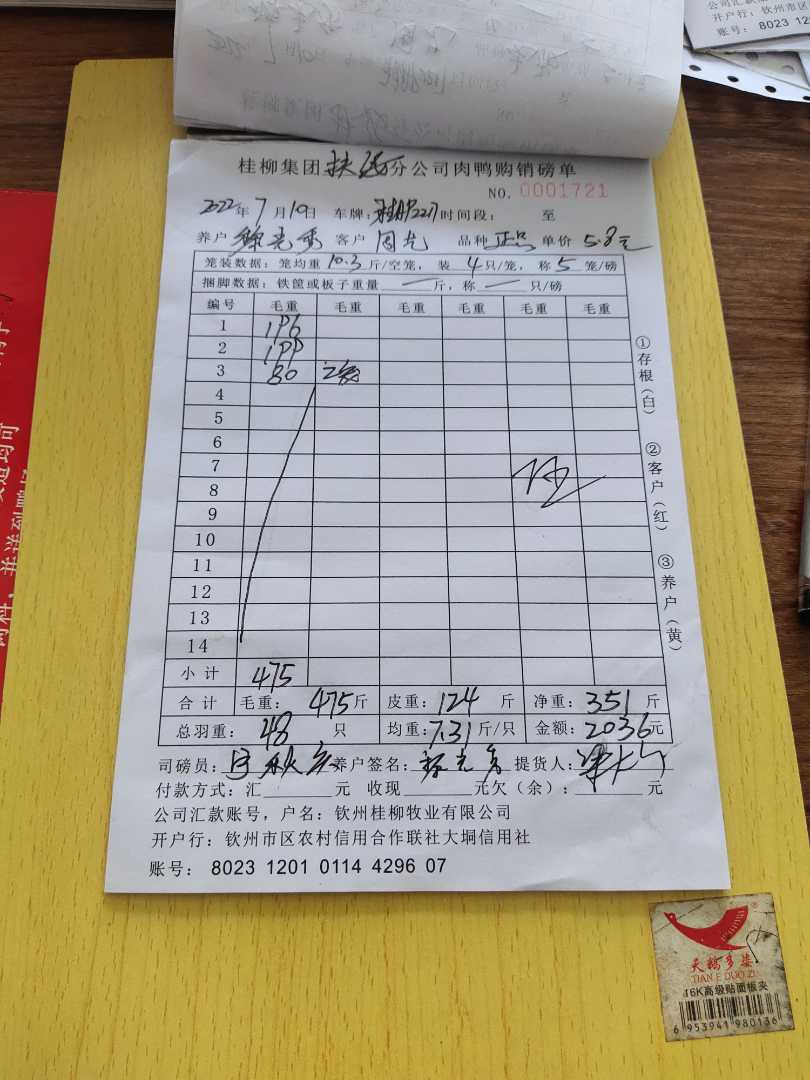 公司汇款
开户行：钦州市区
账号：8023 12
桂柳集团 分公司肉鸭购销磅单
NO. 0001721
2022年7月19日 车牌： 时间段： 至
养户 客户 周光 品种 正品 单价 5.8元
笼装数据：笼均重 10.3 斤/空笼，装 4 只/笼，称 5 笼/磅
捆脚数据：铁筐或板子重量 — 斤，称 — 只/磅
编号 毛重 毛重 毛重 毛重 毛重 毛重
1 196
2 199
3 80 2笼
4
5
6
7
8
9
10
11
12
13
14
小计 475
合计 毛重：475斤 皮重：124 斤 净重：351 斤
总羽重：48 只 均重：7.31斤/只 金额：2036元
司磅员： 养户签名： 提货人：
付款方式：汇 元 收现 元欠（余）： 元
公司汇款账号，户名：钦州桂柳牧业有限公司
开户行：钦州市区农村信用合作联社大垌信用社
账号：8023 1201 0114 4296 07
①存根（白）
②客户（红）
③养户（黄）
天鹅多姿
TIAN E DUO ZI
16K高级贴面板夹
6 953941 980136